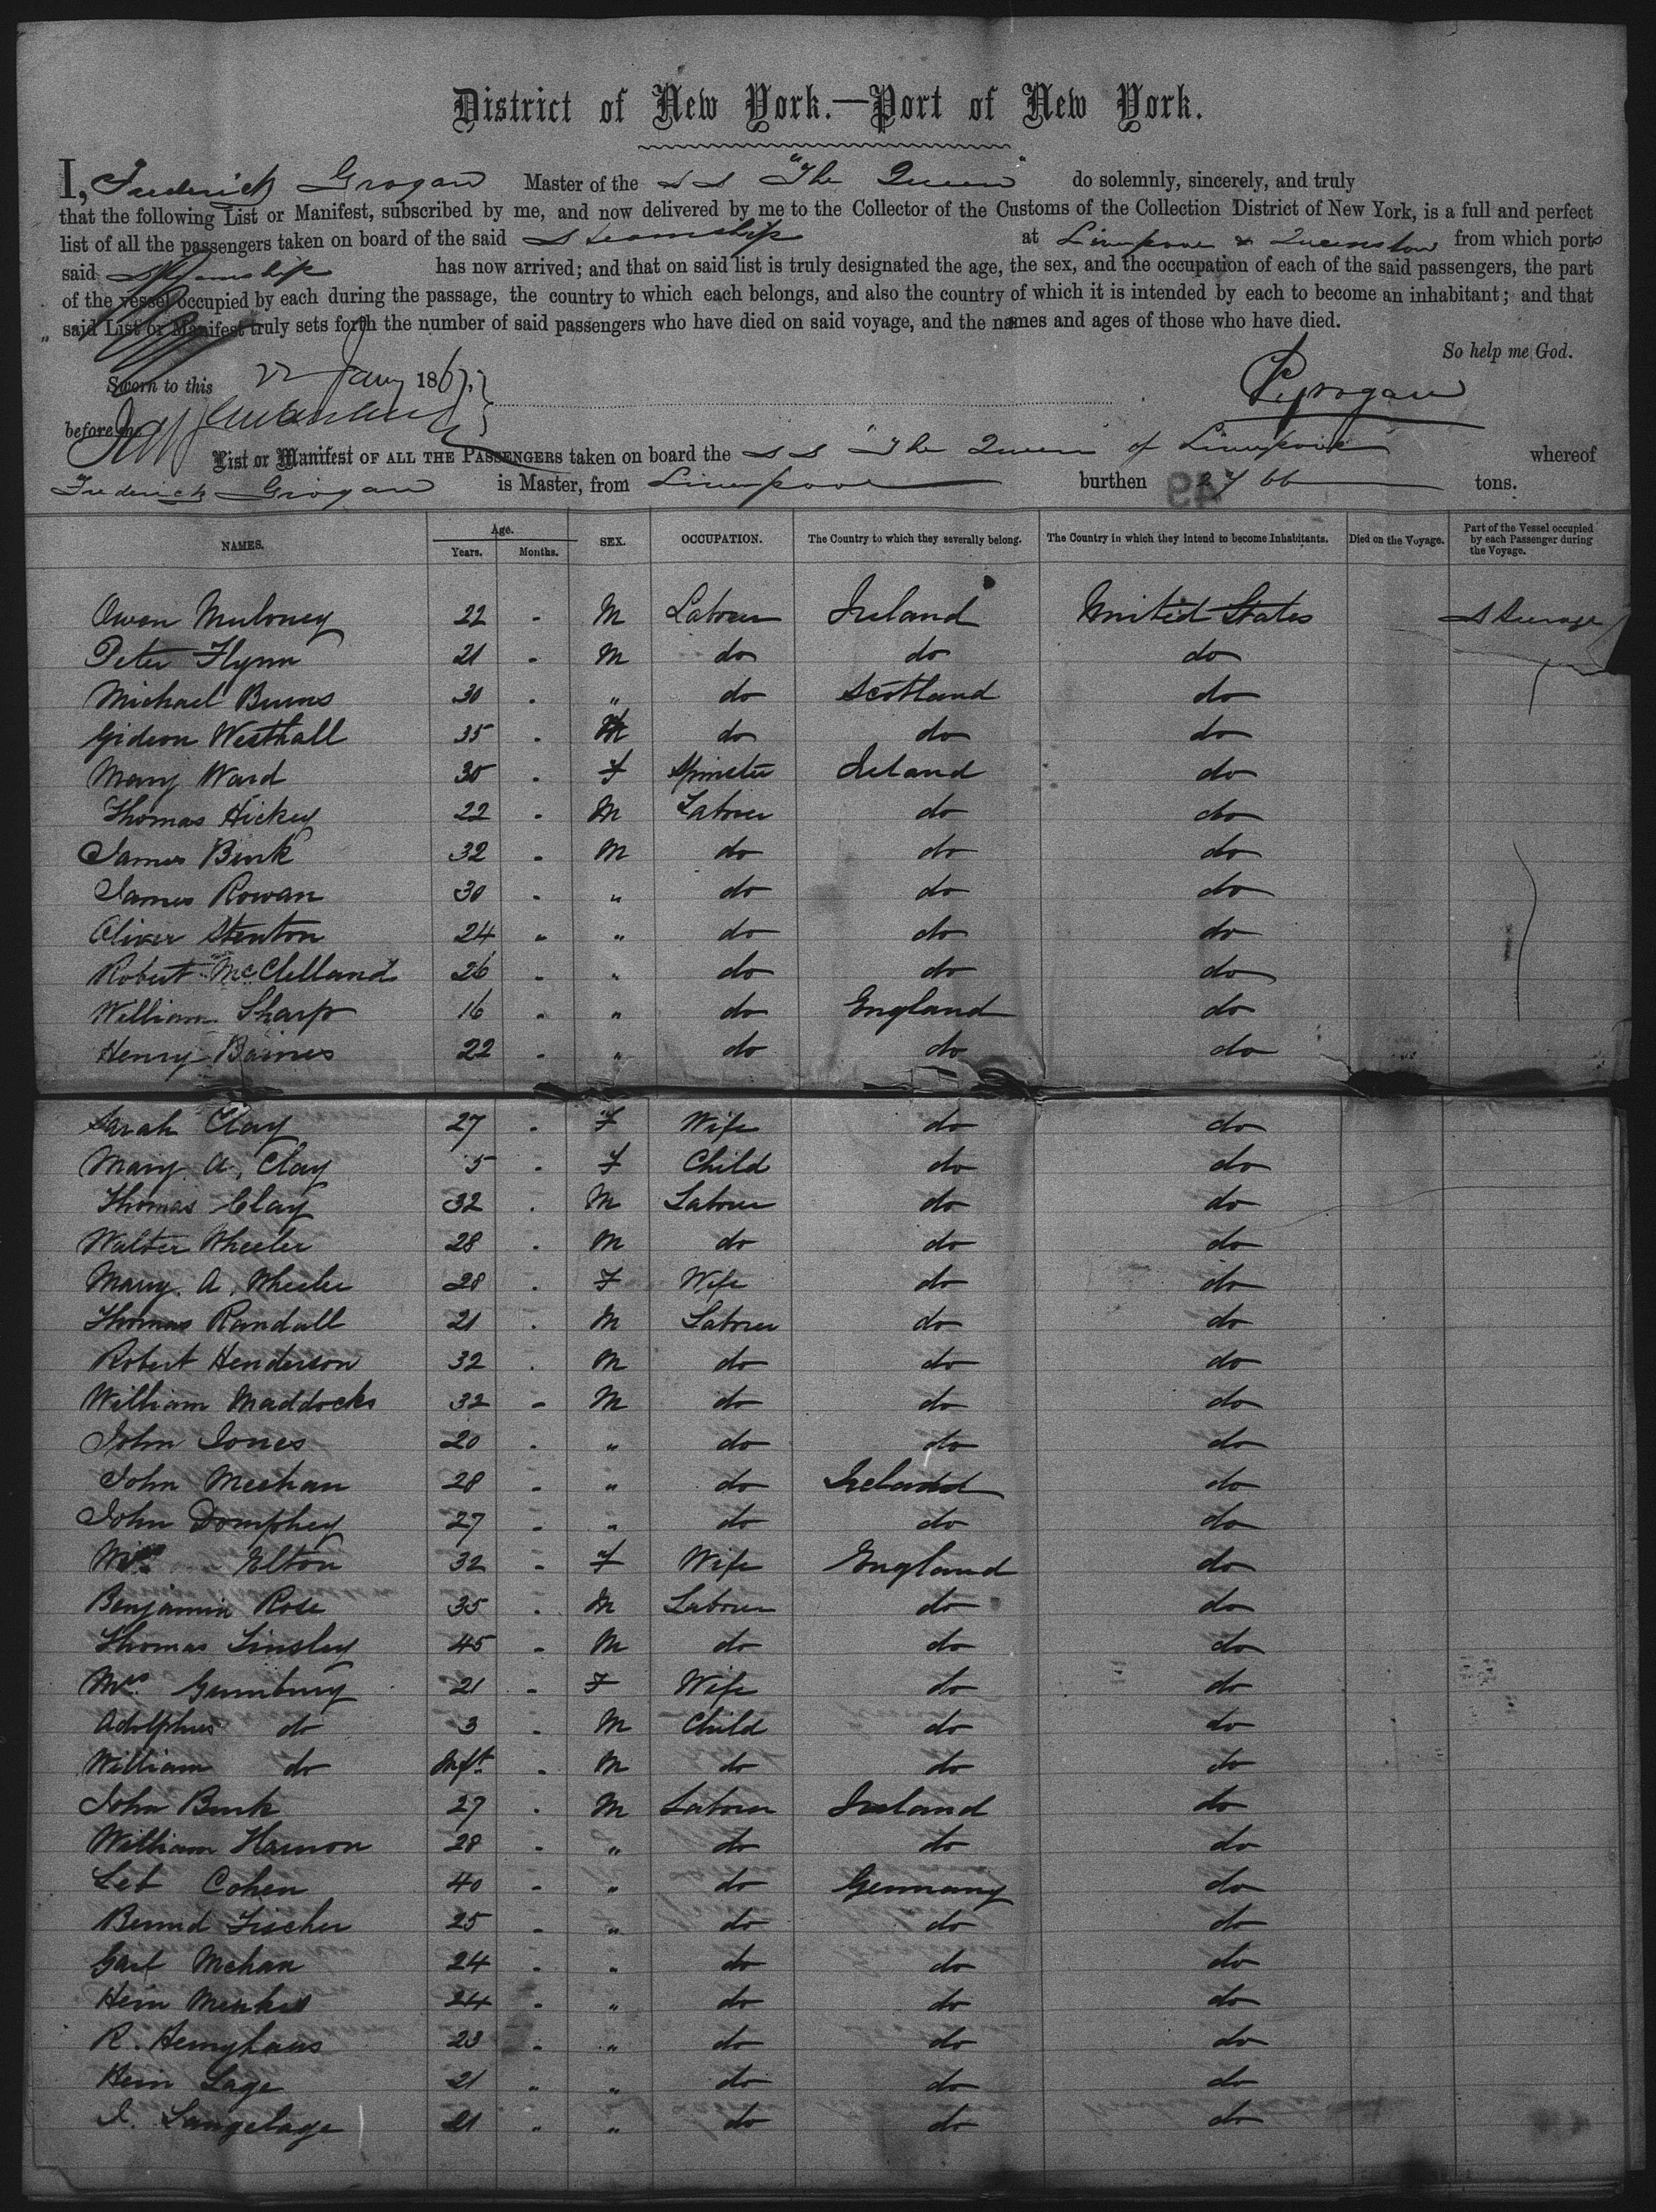 District of New York.—Port of New York.
I, Frederick Grogan Master of the S S "The Queen" do solemnly, sincerely, and truly
that the following List or Manifest, subscribed by me, and now delivered by me to the Collector of the Customs of the Collection District of New York, is a full and perfect
list of all the passengers taken on board of the said Steamship at Liverpool & Queenstown from which ports
said Steamship has now arrived; and that on said list is truly designated the age, the sex, and the occupation of each of the said passengers, the part
of the vessel occupied by each during the passage, the country to which each belongs, and also the country of which it is intended by each to become an inhabitant; and that
said List or Manifest truly sets forth the number of said passengers who have died on said voyage, and the names and ages of those who have died.
So help me God.
Sworn to this 22 Jany 1867.
before me
List or Manifest OF ALL THE PASSENGERS taken on board the S S "The Queen" of Liverpool whereof
Frederick Grogan is Master, from Liverpool burthen tons.
NAMES. Age. Years. Months. SEX. OCCUPATION. The Country to which they severally belong. The Country in which they intend to become Inhabitants. Died on the Voyage. Part of the Vessel occupied by each Passenger during the Voyage.
Owen Muloney 22 - M Labourer Ireland United States Steerage
Peter Flynn 21 - M do do do
Michael Burns 30 - " do Scotland do
Gideon Westhall 35 - M do do do
Mary Ward 30 - F Spinster Ireland do
Thomas Hickey 22 - M Labourer do do
James Burk 32 - M do do do
James Rowan 30 - " do do do
Oliver Stenton 24 " " do do do
Robert McClelland 26 - " do do do
William Sharp 16 - " do England do
Henry Baines 22 - " do do do
Sarah Clay 27 - F Wife do do
Mary A. Clay 5 - F Child do do
Thomas Clay 32 - M Labourer do do
Walter Wheeler 28 - M do do do
Mary A. Wheeler 28 - F Wife do do
Thomas Randall 21 - M Labourer do do
Robert Henderson 32 - M do do do
William Maddocks 32 - M do do do
John Jones 20 - " do do do
John Meehan 28 - " do Ireland do
John Domphey 27 - " do do do
Mrs Elton 32 - F Wife England do
Benjamin Rose 35 - M Labourer do do
Thomas Linsley 45 - M do do do
Mrs Gumbury 21 - F Wife do do
Adolphus do 3 - M Child do do
William do Inft - M do do do
John Burk 27 - M Labourer Ireland do
William Harnon 28 - " do do do
Leb Cohen 40 - " do Germany do
Bernd Fischer 25 - " do do do
Mehan 24 - " do do do
Hein 24 - " do do do
R. Hemyhaus 23 - " do do do
Hein Lage 21 " " do do do
J. Langelage 21 " " do do do